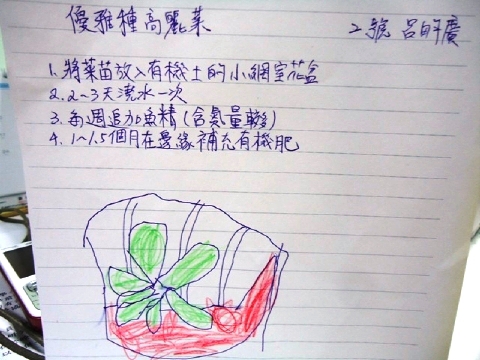 優雅種高麗菜 2號 呂昀廣
1. 將菜苗放入有機土的小網室花盆
2. 2~3天澆水一次
3. 每週追加魚精(含氮量較多)
4. 1~1.5個月在邊緣補充有機肥